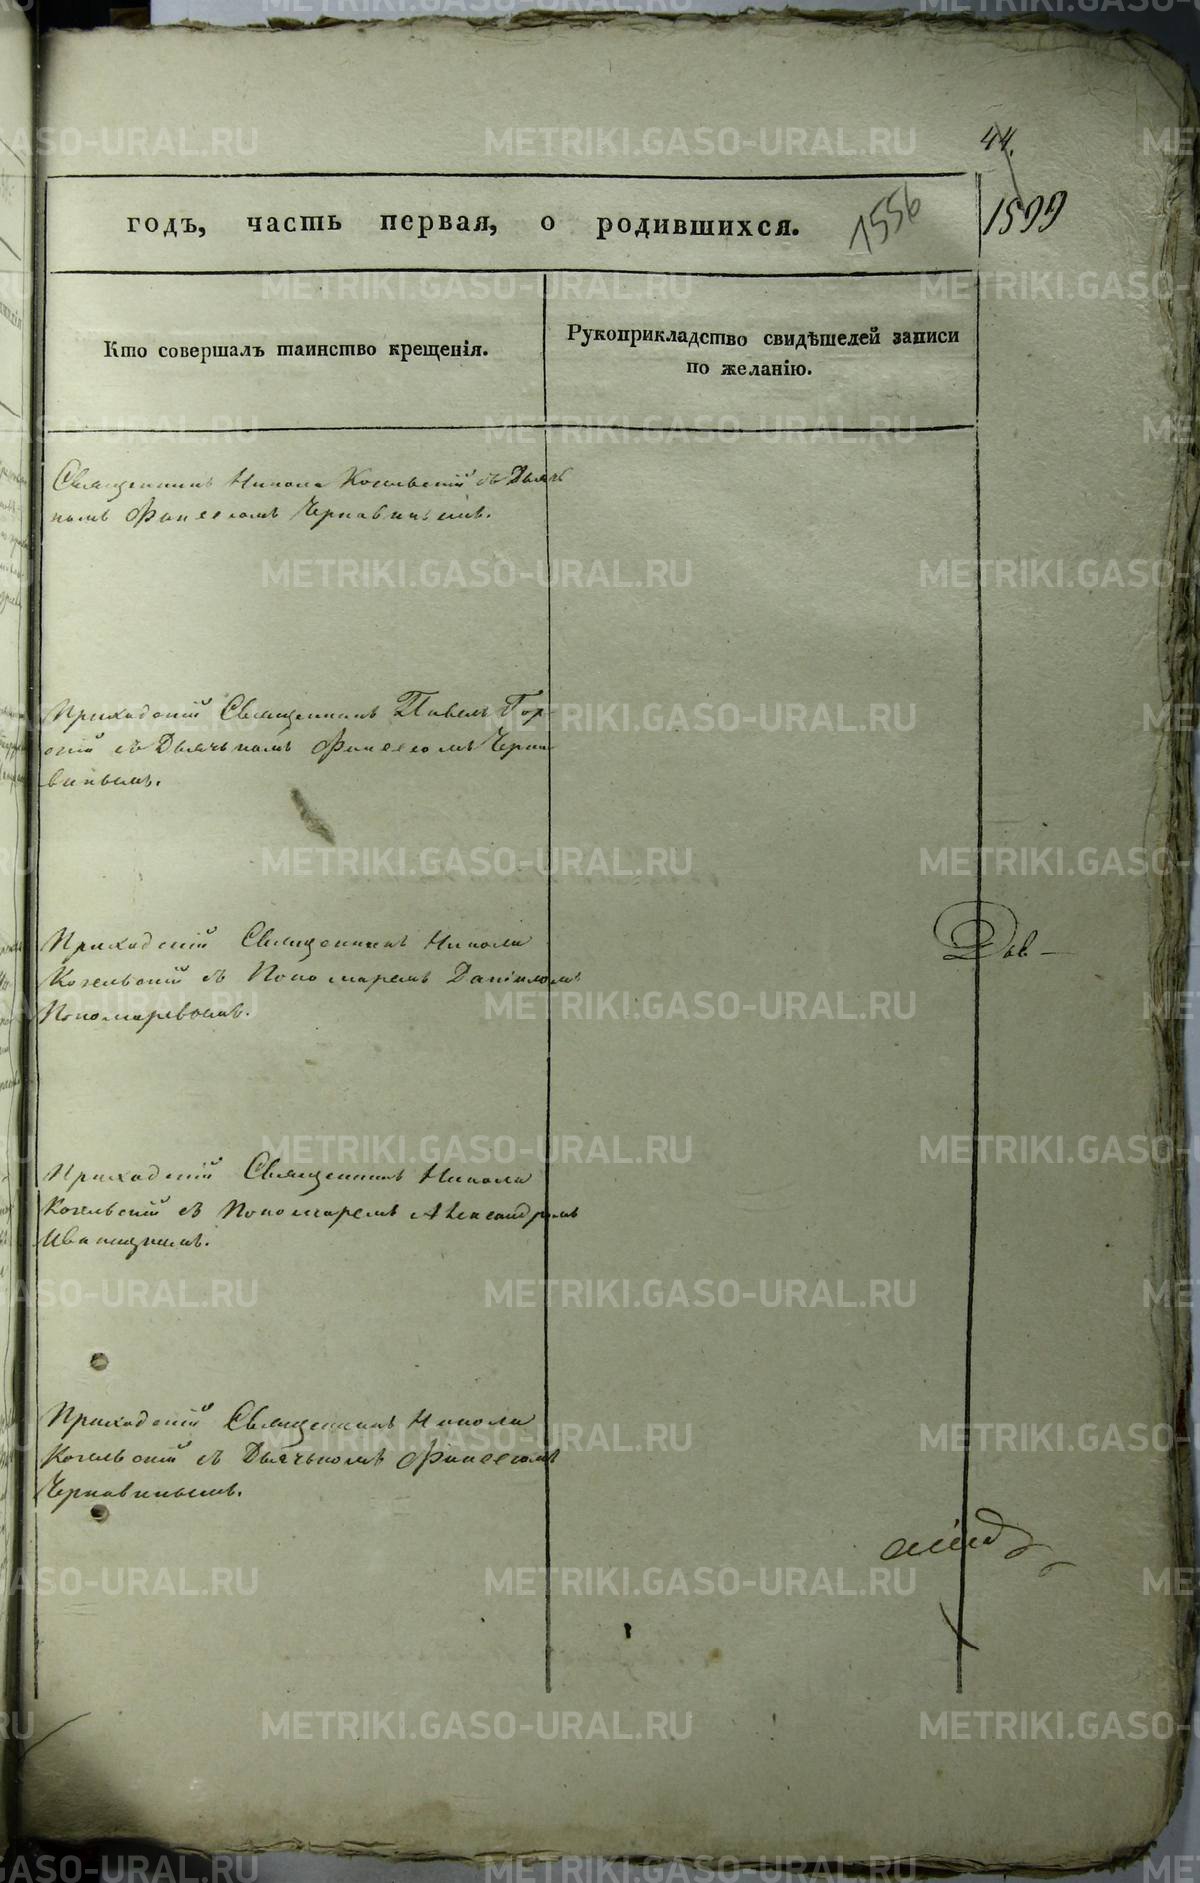 44.
годъ, часть первая, о родившихся. 1556
1599
Кто совершалъ таинство крещенія.
Рукоприкладство свидѣтелей записи
по желанію.
Священникъ Никола Козельскій съ Дьячь
комъ Финеесомъ Чернавинымъ.
Приходскій Священникъ Павелъ Гор-
скій съ Дьячькомъ Финеесомъ Черна
винымъ.
Приходскій Священникъ Никола
Козельскій съ Пономаремъ Даніиломъ
Пономаревымъ.
Дов-
Приходскій Священникъ Никола
Козельскій съ Пономаремъ Александромъ
Иваницкимъ.
Приходскій Священникъ Никола
Козельскій съ Дьячькомъ Финеесомъ
Чернавинымъ.
METRIKI.GASO-URAL.RU